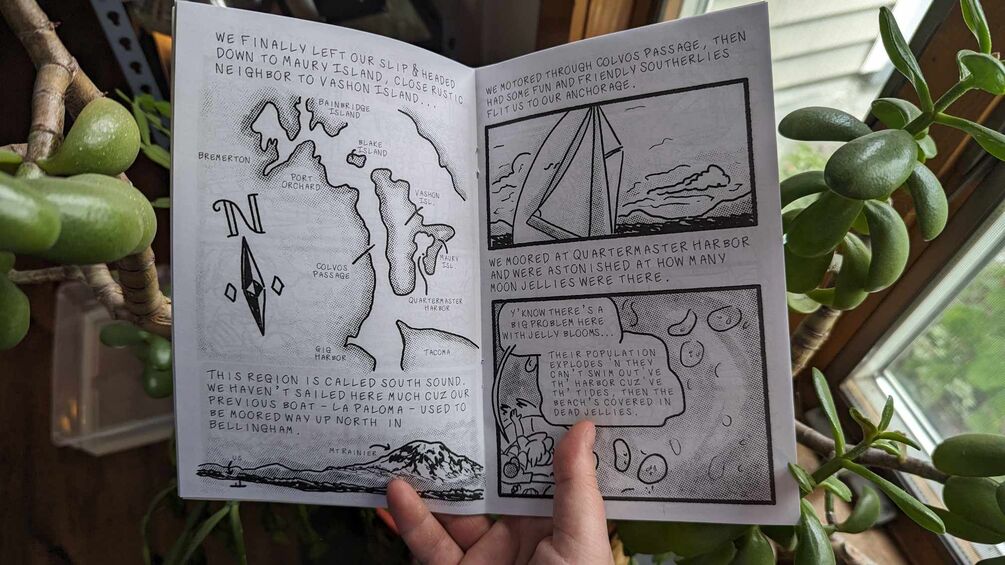 WE FINALLY LEFT OUR SLIP & HEADED
DOWN TO MAURY ISLAND, CLOSE RUSTIC
NEIGHBOR TO VASHON ISLAND...
BAINBRIDGE
ISLAND
BLAKE
ISLAND
BREMERTON
PORT
ORCHARD
VASHON
ISL.
N
MAURY
ISL
COLVOS
PASSAGE
QUARTERMASTER
HARBOR
GIG
HARBOR
TACOMA
THIS REGION IS CALLED SOUTH SOUND.
WE HAVEN'T SAILED HERE MUCH CUZ OUR
PREVIOUS BOAT - LA PALOMA - USED TO
BE MOORED WAY UP NORTH IN
BELLINGHAM.
MT RAINIER
US
WE MOTORED THROUGH COLVOS PASSAGE, THEN
HAD SOME FUN AND FRIENDLY SOUTHERLIES
FLIT US TO OUR ANCHORAGE.
WE MOORED AT QUARTERMASTER HARBOR
AND WERE ASTONISHED AT HOW MANY
MOON JELLIES WERE THERE.
Y'KNOW THERE'S A
BIG PROBLEM HERE
WITH JELLY BLOOMS...
THEIR POPULATION
EXPLODES 'N THEY
CAN'T SWIM OUT'VE
TH' HARBOR CUZ'VE
TH' TIDES, THEN THE
BEACH'S COVERED IN
DEAD JELLIES.